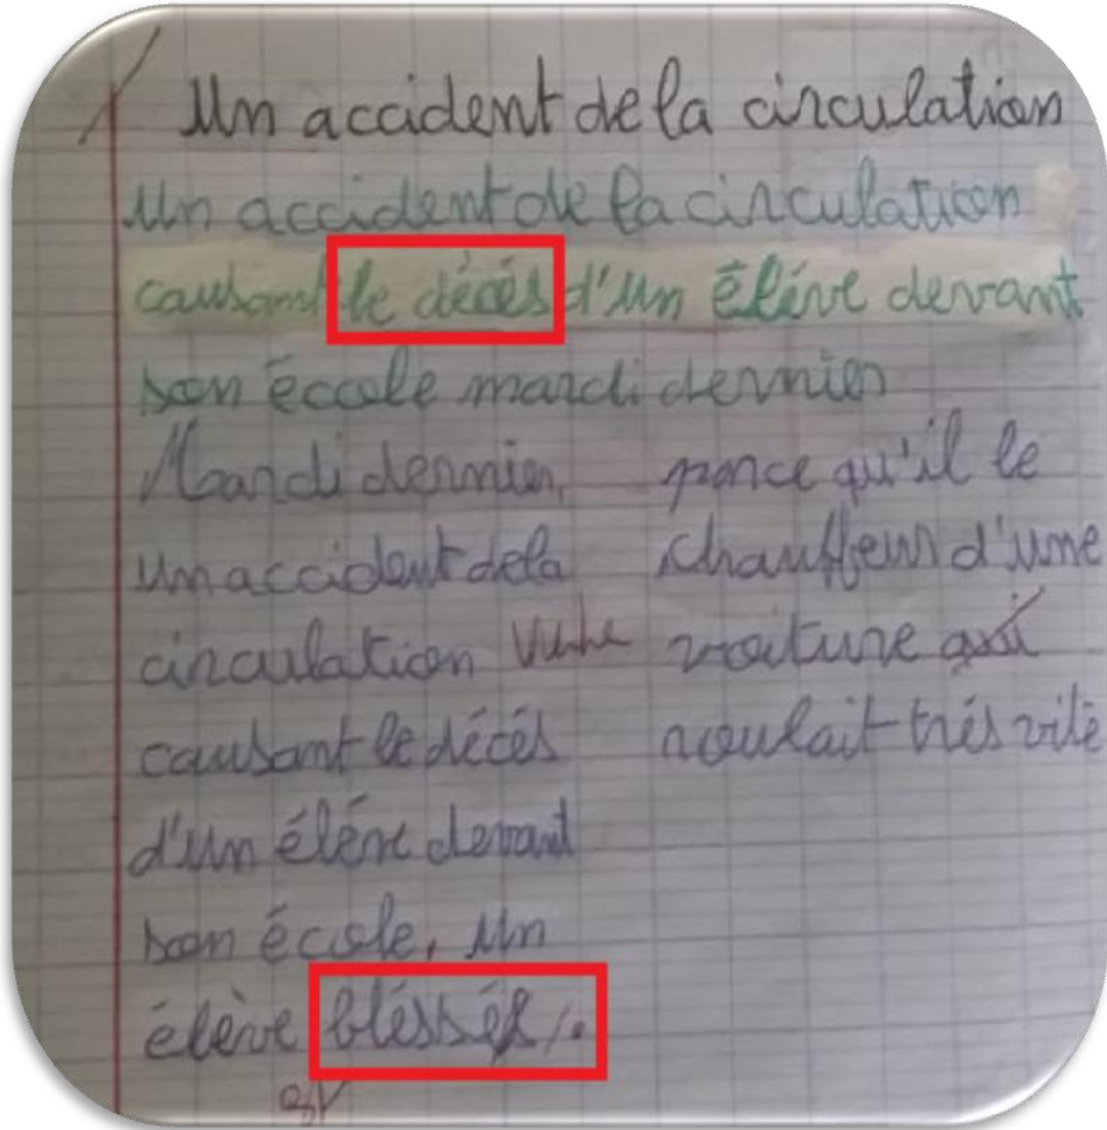 Un accident de la circulation
Un accident de la circulation
causant le décés d'un élève devant
son éccole mardi dernier
Mardi dernier,
un accident de la
circulation Verbe
causant le décés
d'un élève devant
son école, un
élève bléssés.
parce qu'il le
chauffeur d'une
voiture qui
roulait trés vite